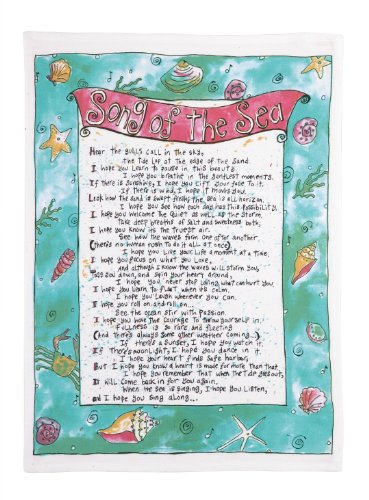 Song of the Sea
Hear the gulls call in the sky,
the tide lap at the edge of the sand.
I hope you learn to pause in this beauty
I hope you breathe in the songlest moments.
If there is sunshine, I hope you lift your face to it.
If there is wind, I hope it moves you.
Look how the sand is swept fresh, the sea is all horizon.
I hope you see how each day has this possibility.
I hope you welcome the quiet as well as the storm,
take deep breaths of salt and sweetness both,
I hope you know its the truest air.
See how the waves form one after another
(there's no human rush to do it all at once)
I hope you live your life a moment at a time,
I hope you focus on what you love,
and although I know the waves will storm you,
toss you down, and spin your heart around,
I hope you never stop loving what can hurt you.
I hope you learn to float when it's calm,
I hope you laugh whenever you can.
I hope you roll on and roll on...
See the ocean stir with passion.
I hope you have the courage to throw yourself in
fullness is so rare and fleeting
(and there's always some other weather coming...)
If there's a sunset, I hope you watch it.
If there's moonlight, I hope you dance in it.
I hope your heart finds safe harbor,
But I hope you know a heart is made for more than that
I hope you remember that when the tide goes out,
it will come back in for you again.
When the sea is singing, I hope you listen,
and I hope you sing along...